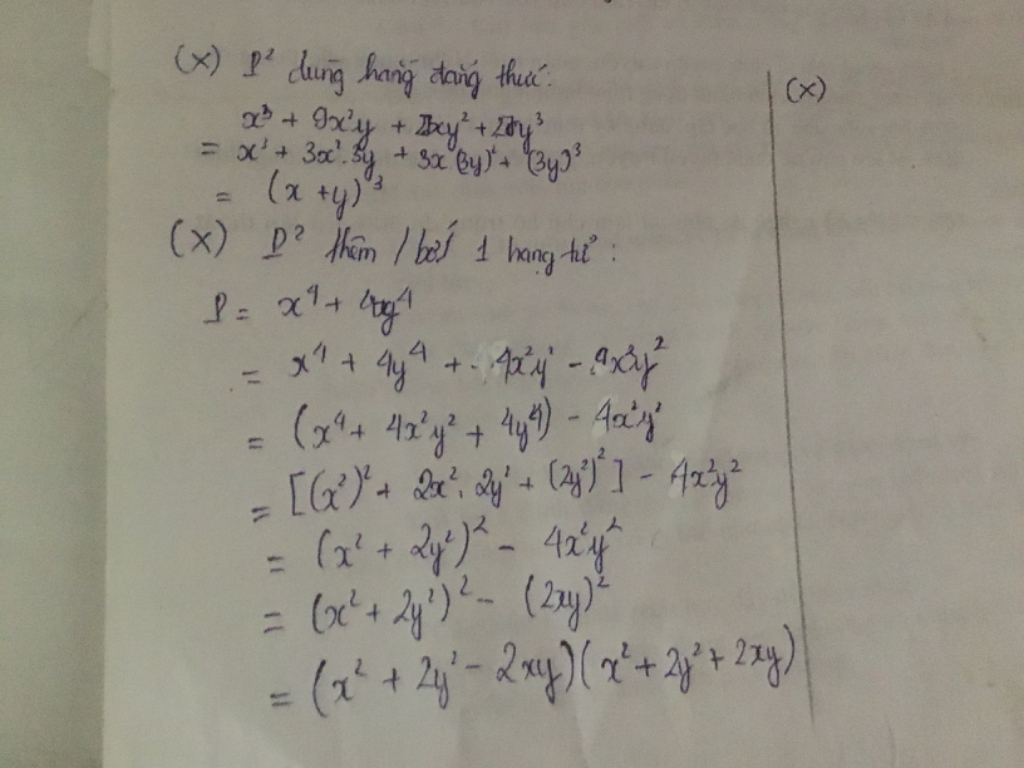 (x) P² dùng hằng đẳng thức:
x³ + 9x²y + 27xy² + 27y³
= x³ + 3x².3y + 3x.(3y)² + (3y)³
= (x + y)³
(x) P² thêm / bớt 1 hạng tử:
P = x⁴ + 4y⁴
= x⁴ + 4y⁴ + 4x²y² - 4x²y²
= (x⁴ + 4x²y² + 4y⁴) - 4x²y²
= [(x²)² + 2x².2y² + (2y²)²] - 4x²y²
= (x² + 2y²)² - 4x²y²
= (x² + 2y²)² - (2xy)²
= (x² + 2y² - 2xy)(x² + 2y² + 2xy)
(x)